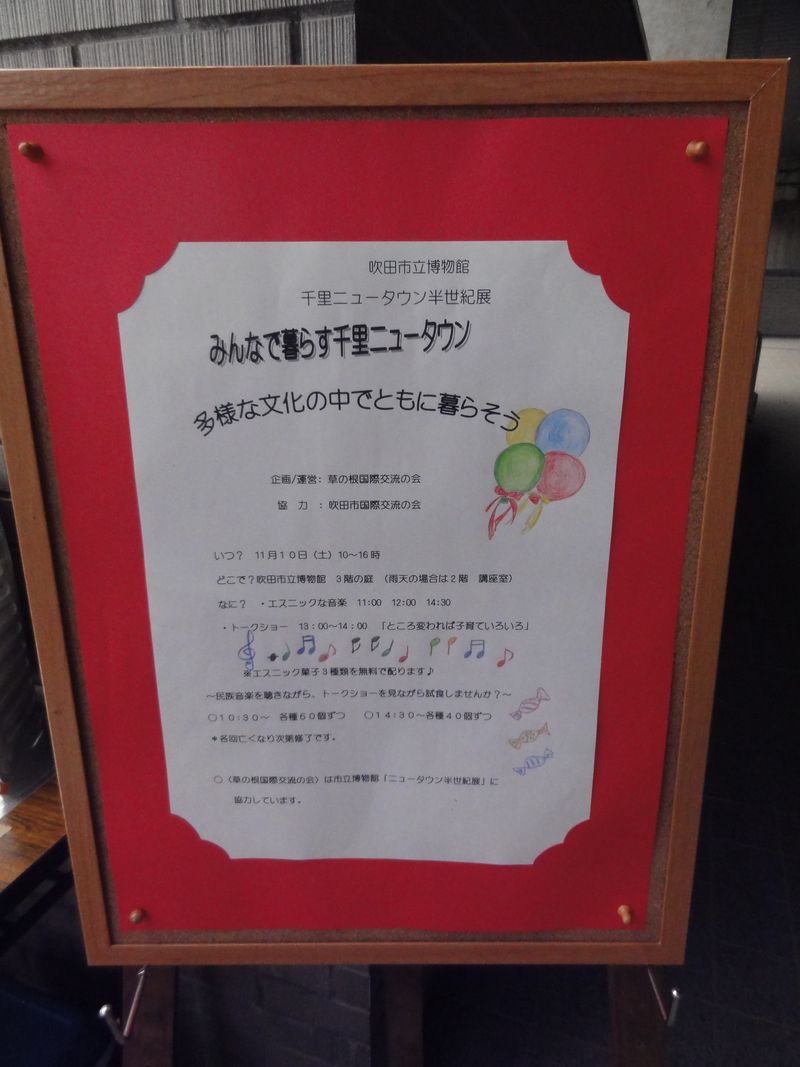 吹田市立博物館
千里ニュータウン半世紀展
みんなで暮らす千里ニュータウン
多様な文化の中でともに暮らそう
企画/運営：草の根国際交流の会
協　力　：吹田市国際交流の会
いつ？　１１月１０日（土）10～16時
どこで？吹田市立博物館　３階の庭　（雨天の場合は２階　講座室）
なに？　・エスニックな音楽　11:00　12:00　14:30
・トークショー　13:00～14:00　「ところ変われば子育ていろいろ」
※エスニック菓子３種類を無料で配ります♪
～民族音楽を聴きながら、トークショーを見ながら試食しませんか？～
○１０：３０～　各種６０個ずつ　　○１４：３０～各種４０個ずつ
＊各回亡くなり次第修了です。
○〈草の根国際交流の会〉は市立博物館「ニュータウン半世紀展」に
協力しています。